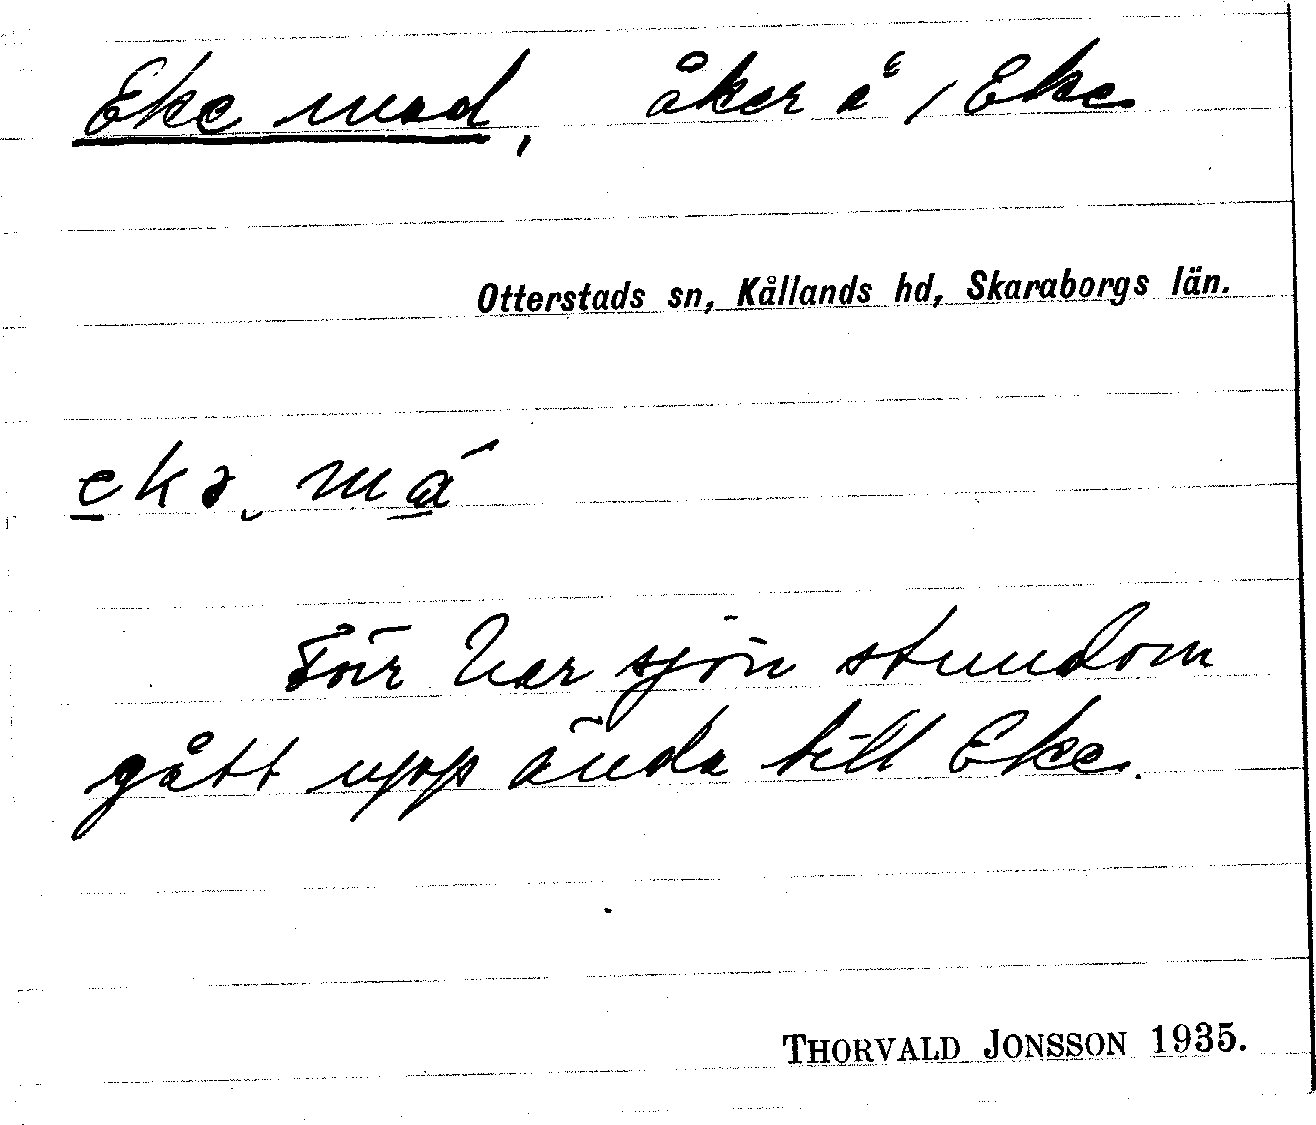 Eke mad, åker å /Eke
Otterstads sn, Kållands hd, Skaraborgs län.
ekə má
Förr har sjön stundom
gått upp ända till Eke.
THORVALD JONSSON 1935.